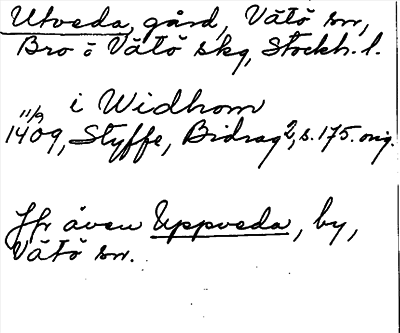 Utveda, gård, Vätö sn,
Bro o Vätö skg, Stockh. l.
i Widhom
11/9
1409, Styffe, Bidrag 2, s. 175. orig.
Jfr även Uppveda, by,
Vätö sn.